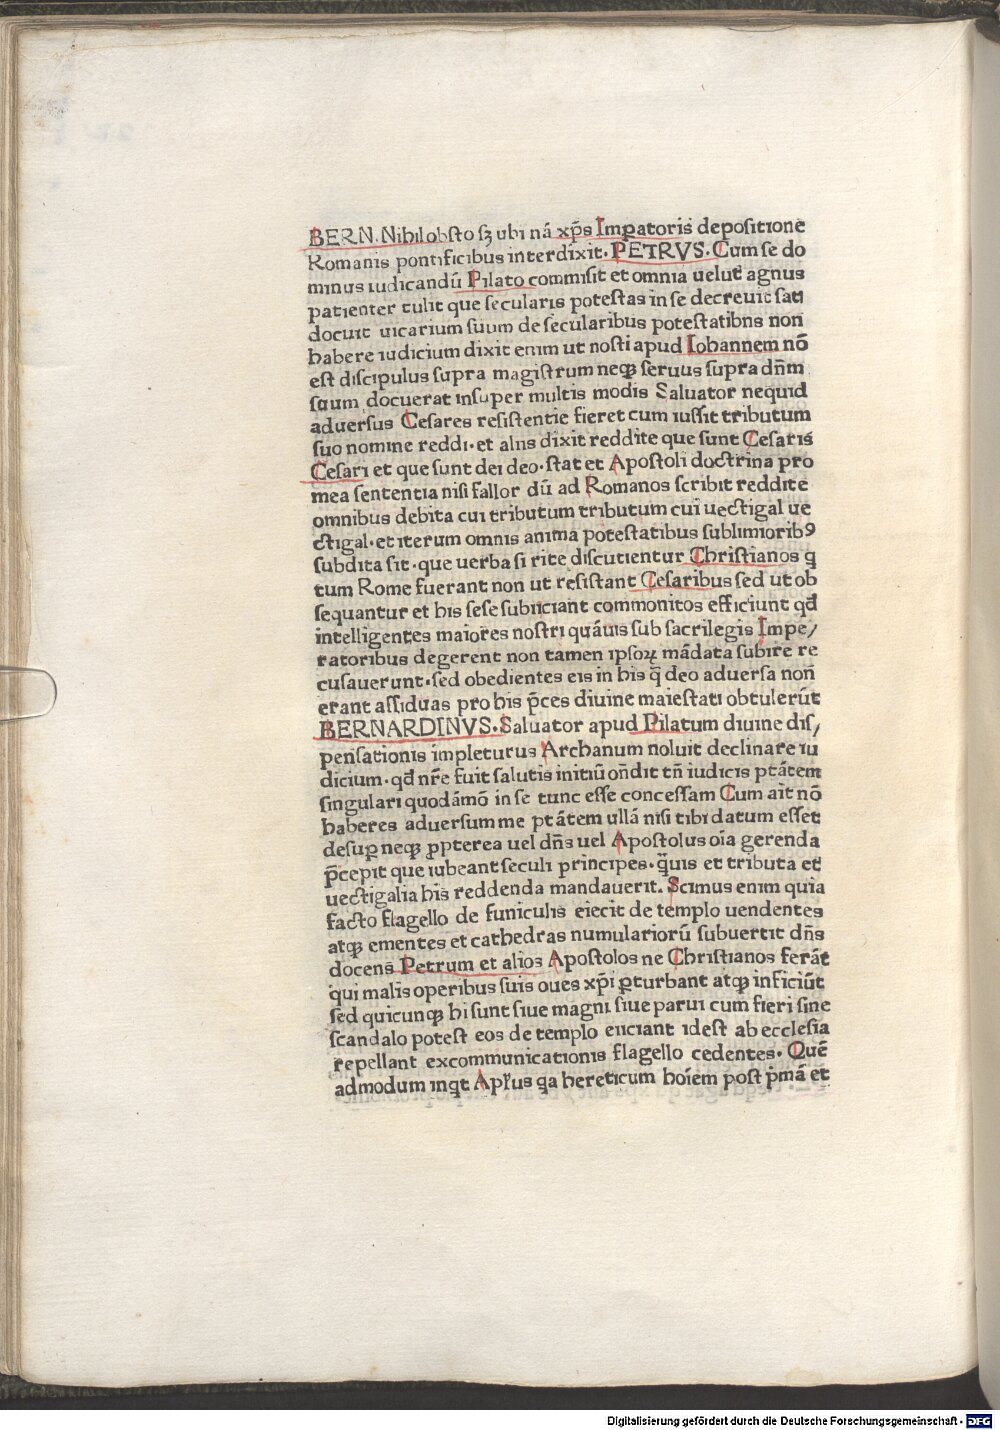 BERN. Nihil obsto sꝫ ubi nā xp̄s Imꝑatoris depositione
Romanis pontificibus interdixit. PETRVS. Cum se do
minus iudicandū Pilato commisit et omnia uelut agnus
patienter tulit que secularis potestas in se decreuit sati
docuit uicarium suum de secularibus potestatibns non
habere iudicium dixit enim ut nosti apud Iohannem nō
est discipulus supra magistrum neqꝫ seruus supra dn̄m
suum docuerat insuper multis modis Saluator nequid
aduersus Cesares resistentie fieret cum iussit tributum
suo nomine reddi. et aliis dixit reddite que sunt Cesaris
Cesari et que sunt dei deo. stat et Apostoli doctrina pro
mea sententia nisi fallor dū ad Romanos scribit reddite
omnibus debita cui tributum tributum cui uectigal ue
ctigal. et iterum omnis anima potestatibus sublimiorib⁹
subdita sit. que uerba si rite discutientur Christianos q
tum Rome fuerant non ut resistant Cesaribus sed ut ob
sequantur et his sese subiiciant commonitos efficiunt qd̄
intelligentes maiores nostri quāuis sub sacrilegis Impe/
ratoribus degerent non tamen ipsoꝝ mādata subire re
cusauerunt. sed obedientes eis in his q̄ deo aduersa non
erant assiduas pro his p̄ces diuine maiestati obtulerūt
BERNARDINVS. Saluator apud Pilatum diuine dis/
pensationis impleturus Archanum noluit declinare iu
dicium. qd̄ nr̄e fuit salutis initiū on̄dit tn̄ iudicis ptātem
singulari quodāmō in se tunc esse concessam Cum ait nō
haberes aduersum me ptātem ullā nisi tibi datum esset
desuꝑ neqꝫ ꝓpterea uel dn̄s uel Apostolus oīa gerenda
p̄cepit que iubeant seculi principes. q̄uis et tributa et
uectigalia his reddenda mandauerit. Scimus enim quia
facto flagello de funiculis eiecit de templo uendentes
atqꝫ ementes et cathedras numulariorū subuertit dn̄s
docens Petrum et alios Apostolos ne Christianos ferāt
qui malis operibus suis oues xp̄i ꝑturbant atqꝫ inficiūt
sed quicunqꝫ hi sunt siue magni siue parui cum fieri sine
scandalo potest eos de templo eiiciant idest ab ecclesia
repellant excommunicationis flagello cedentes. Quē
admodum inqt Apl̄us qa hereticum hoīem post p̄mā et
Digitalisierung gefördert durch die Deutsche Forschungsgemeinschaft - DFG